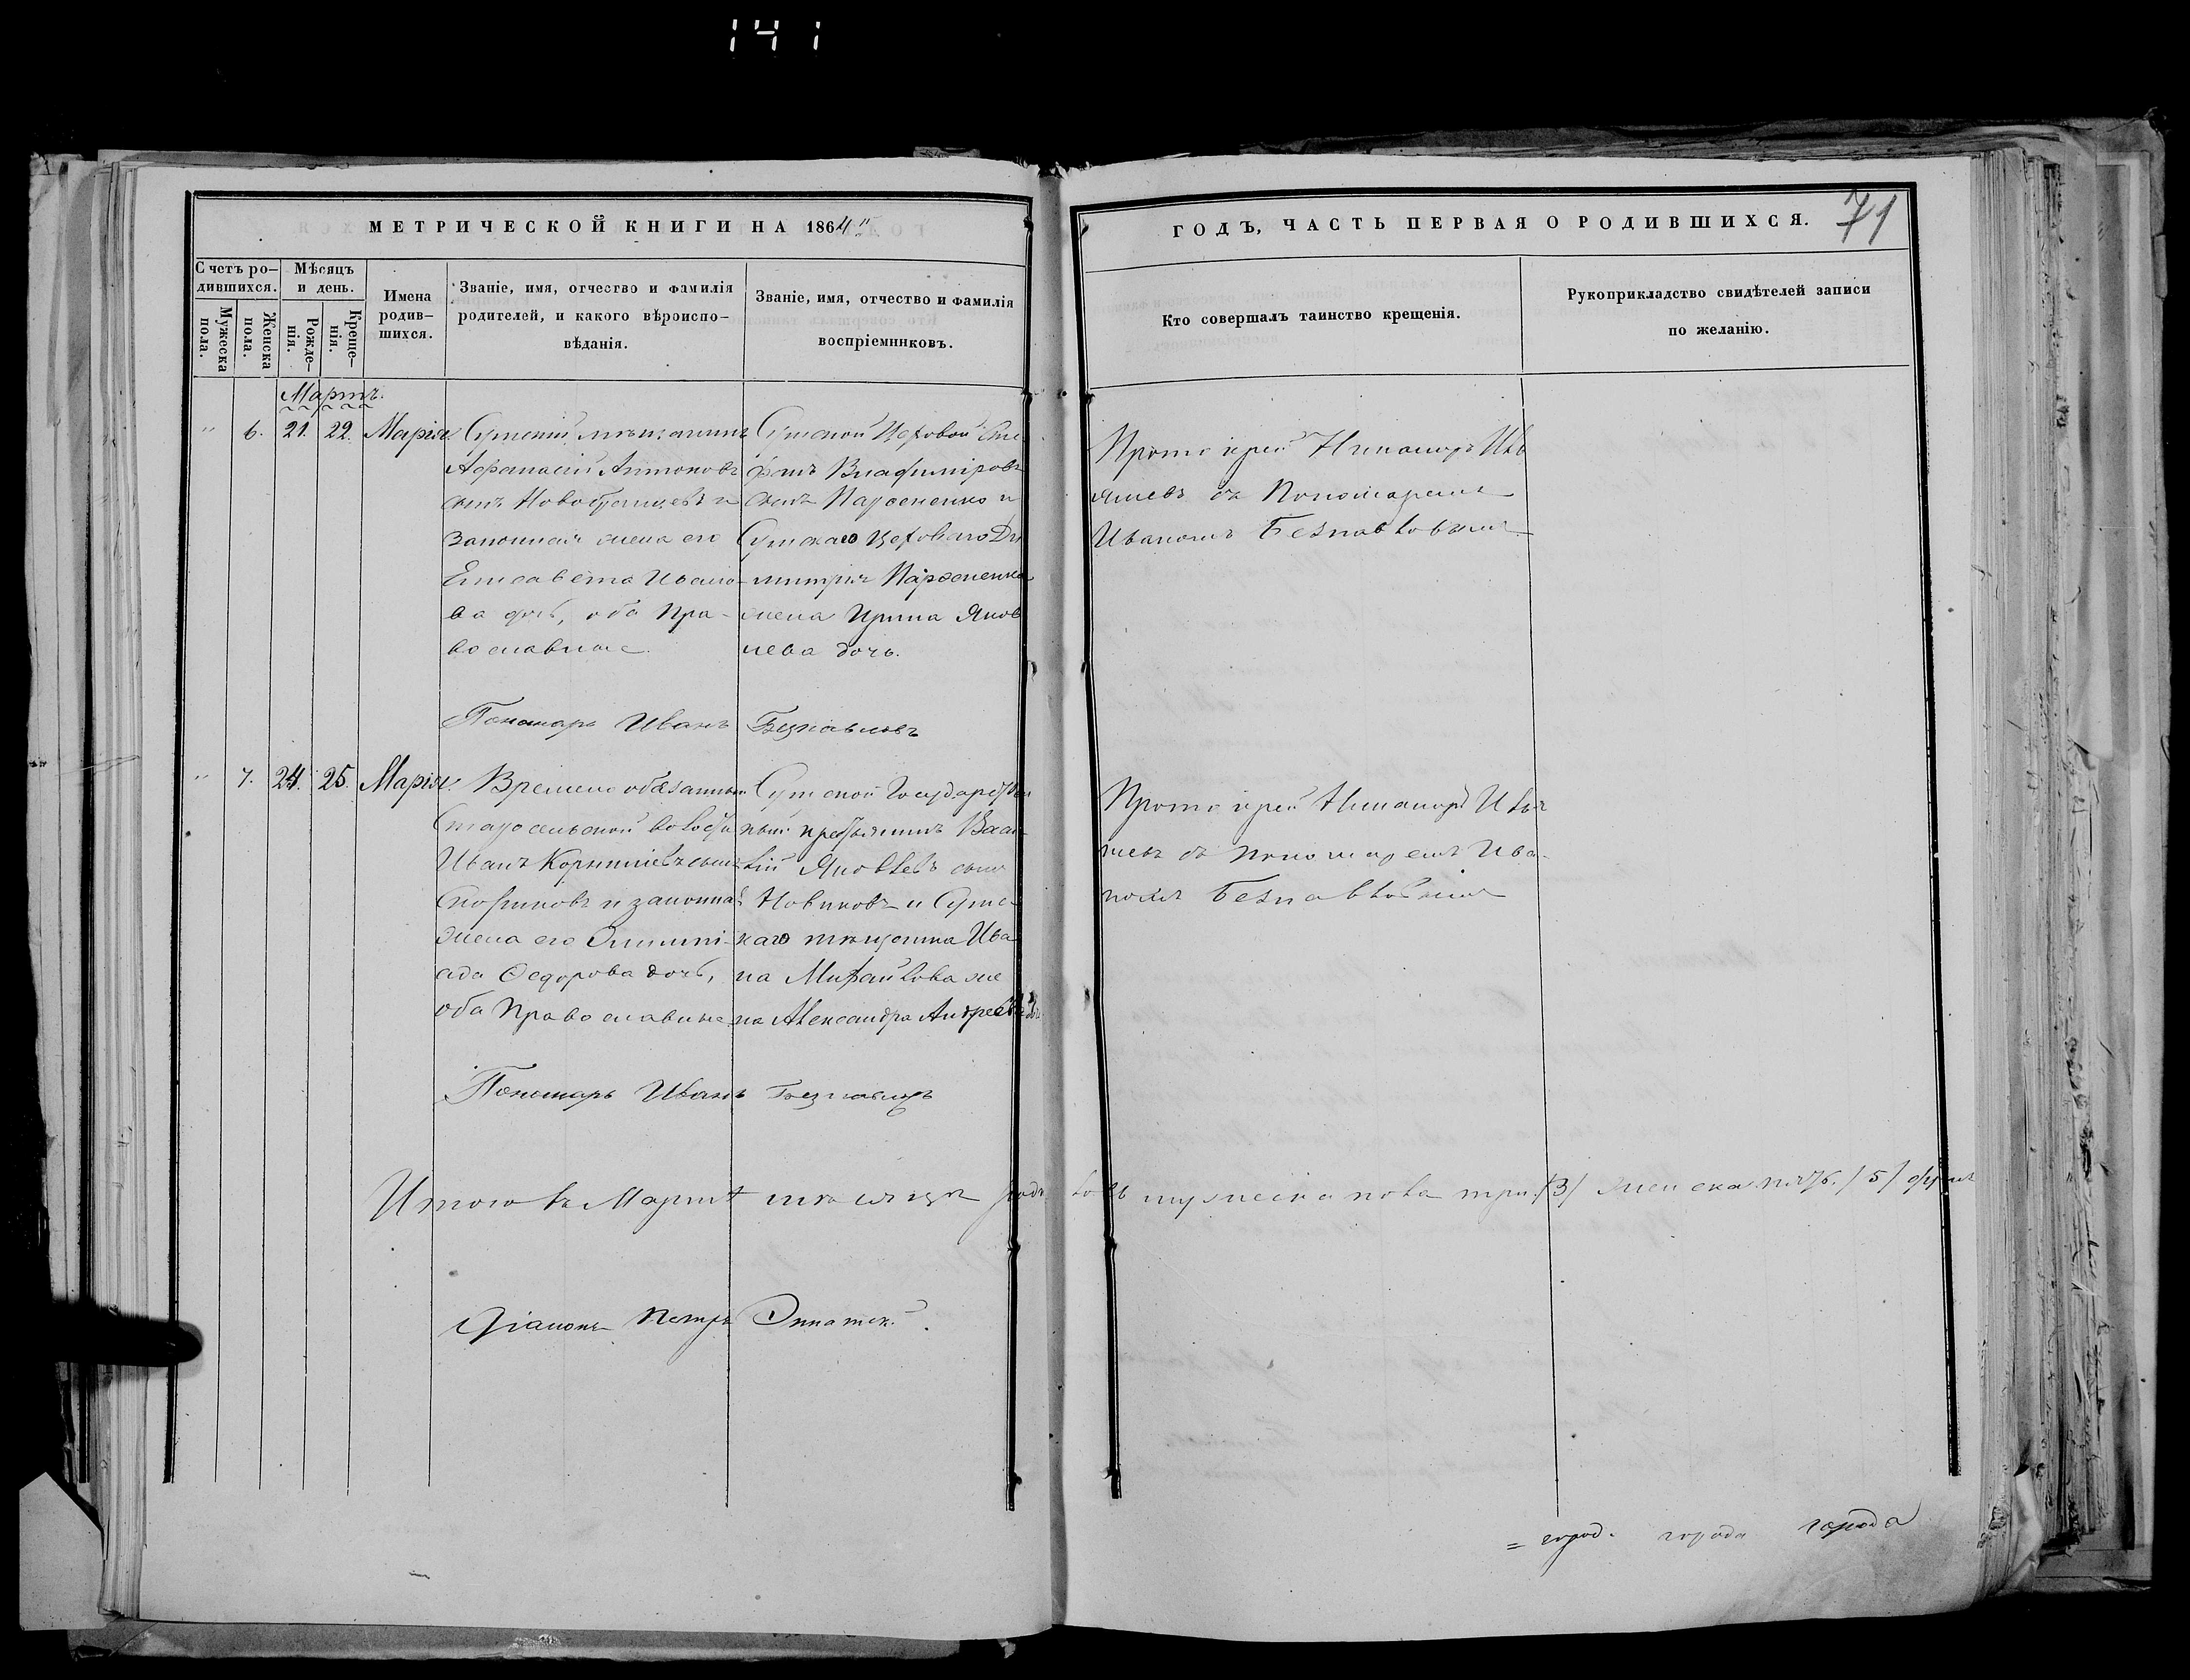 141
МЕТРИЧЕСКОЙ КНИГИ НА 1864
ГОДЪ, ЧАСТЬ ПЕРВАЯ О РОДИВШИХСЯ.
71
Счетъ ро-
дившихся.
Мужеска
пола.
Женска
пола.
Мѣсяцъ
и день.
Рожде-
нія.
Креще-
нія.
Имена
родив-
шихся.
Званіе, имя, отчество и фамилія
родителей, и какого вѣроиспо-
вѣданія.
Званіе, имя, отчество и фамилія
воспріемниковъ.
Кто совершалъ таинство крещенія.
Рукоприкладство свидѣтелей записи
по желанію.
Мартъ.
" 6. 21. 22. Марія
Сумскій мѣщанинъ
Афанасій Антоновъ
сынъ и
законная жена его
Елисавета Ивано-
ва дочь, оба Пра-
вославные.
Сумской Цеховой Сте
фанъ Владиміровъ
сынъ Парѳененко и
Сумскаго Цеховаго Ди
митрія Парѳененка
жена Ирина Яков
лева дочь.
Протоіерей Никаноръ
съ Пономаремъ
Иваномъ Безпавловымъ
Пономарь Иванъ Безпавловъ
" 7. 24. 25. Марія
Временно обязанный
Старосельской волости
Иванъ Корниліевъ сынъ
и законная
жена его Олимпі-
ада Ѳедорова дочь,
оба Православные
Сумской Государствен
ный крестьянинъ Васи
лій Яковлевъ сынъ
Новиковъ и Сумс
каго мѣщанина Ива
на Михайлова же
на Александра Андреева дочь
Протоіерей Никаноръ
съ пономаремъ Ива-
номъ Безпавловымъ
Пономарь Иванъ Безпавловъ
Итого въ Мартѣ мѣсяцѣ роди
лось мужеска пола три /3/ женска пять /5/ душъ
Діаконъ Петръ
= город. города города